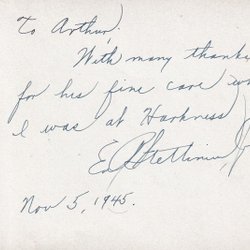 To Arthur.
With many thanks
for his fine care w
I was at Harkness
E R Stettinius, Jr
Nov 5, 1945.